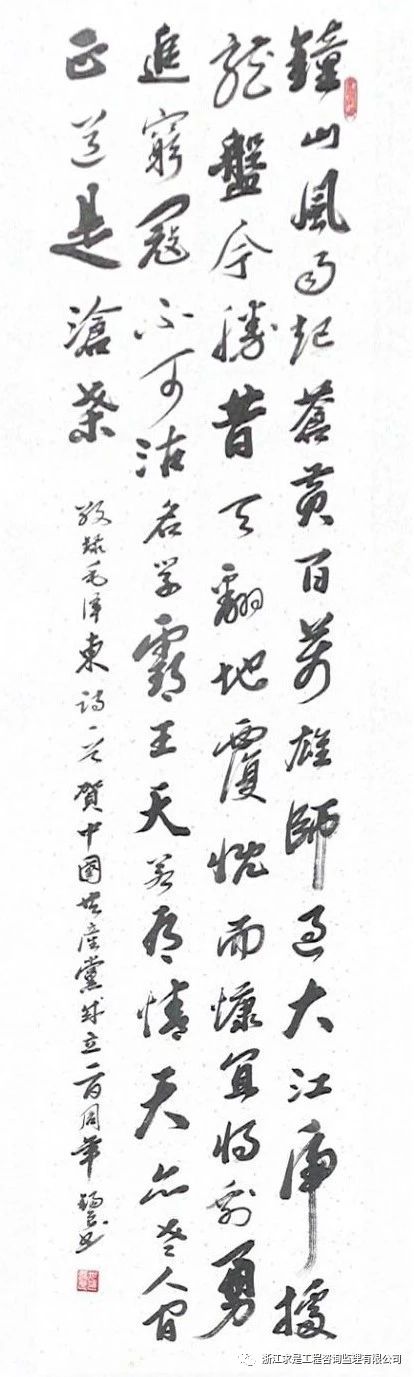 鐘山風雨起蒼黄百萬雄師過大江虎據
龍盤今勝昔天翻地覆慨而慷宜將剩勇
進窮寇不可沽名学霸王天若有情天亦老人间
正道是滄桑
敬錄毛泽東诗一首賀中國共產黨成立一百周年
浙江求是工程咨询监理有限公司